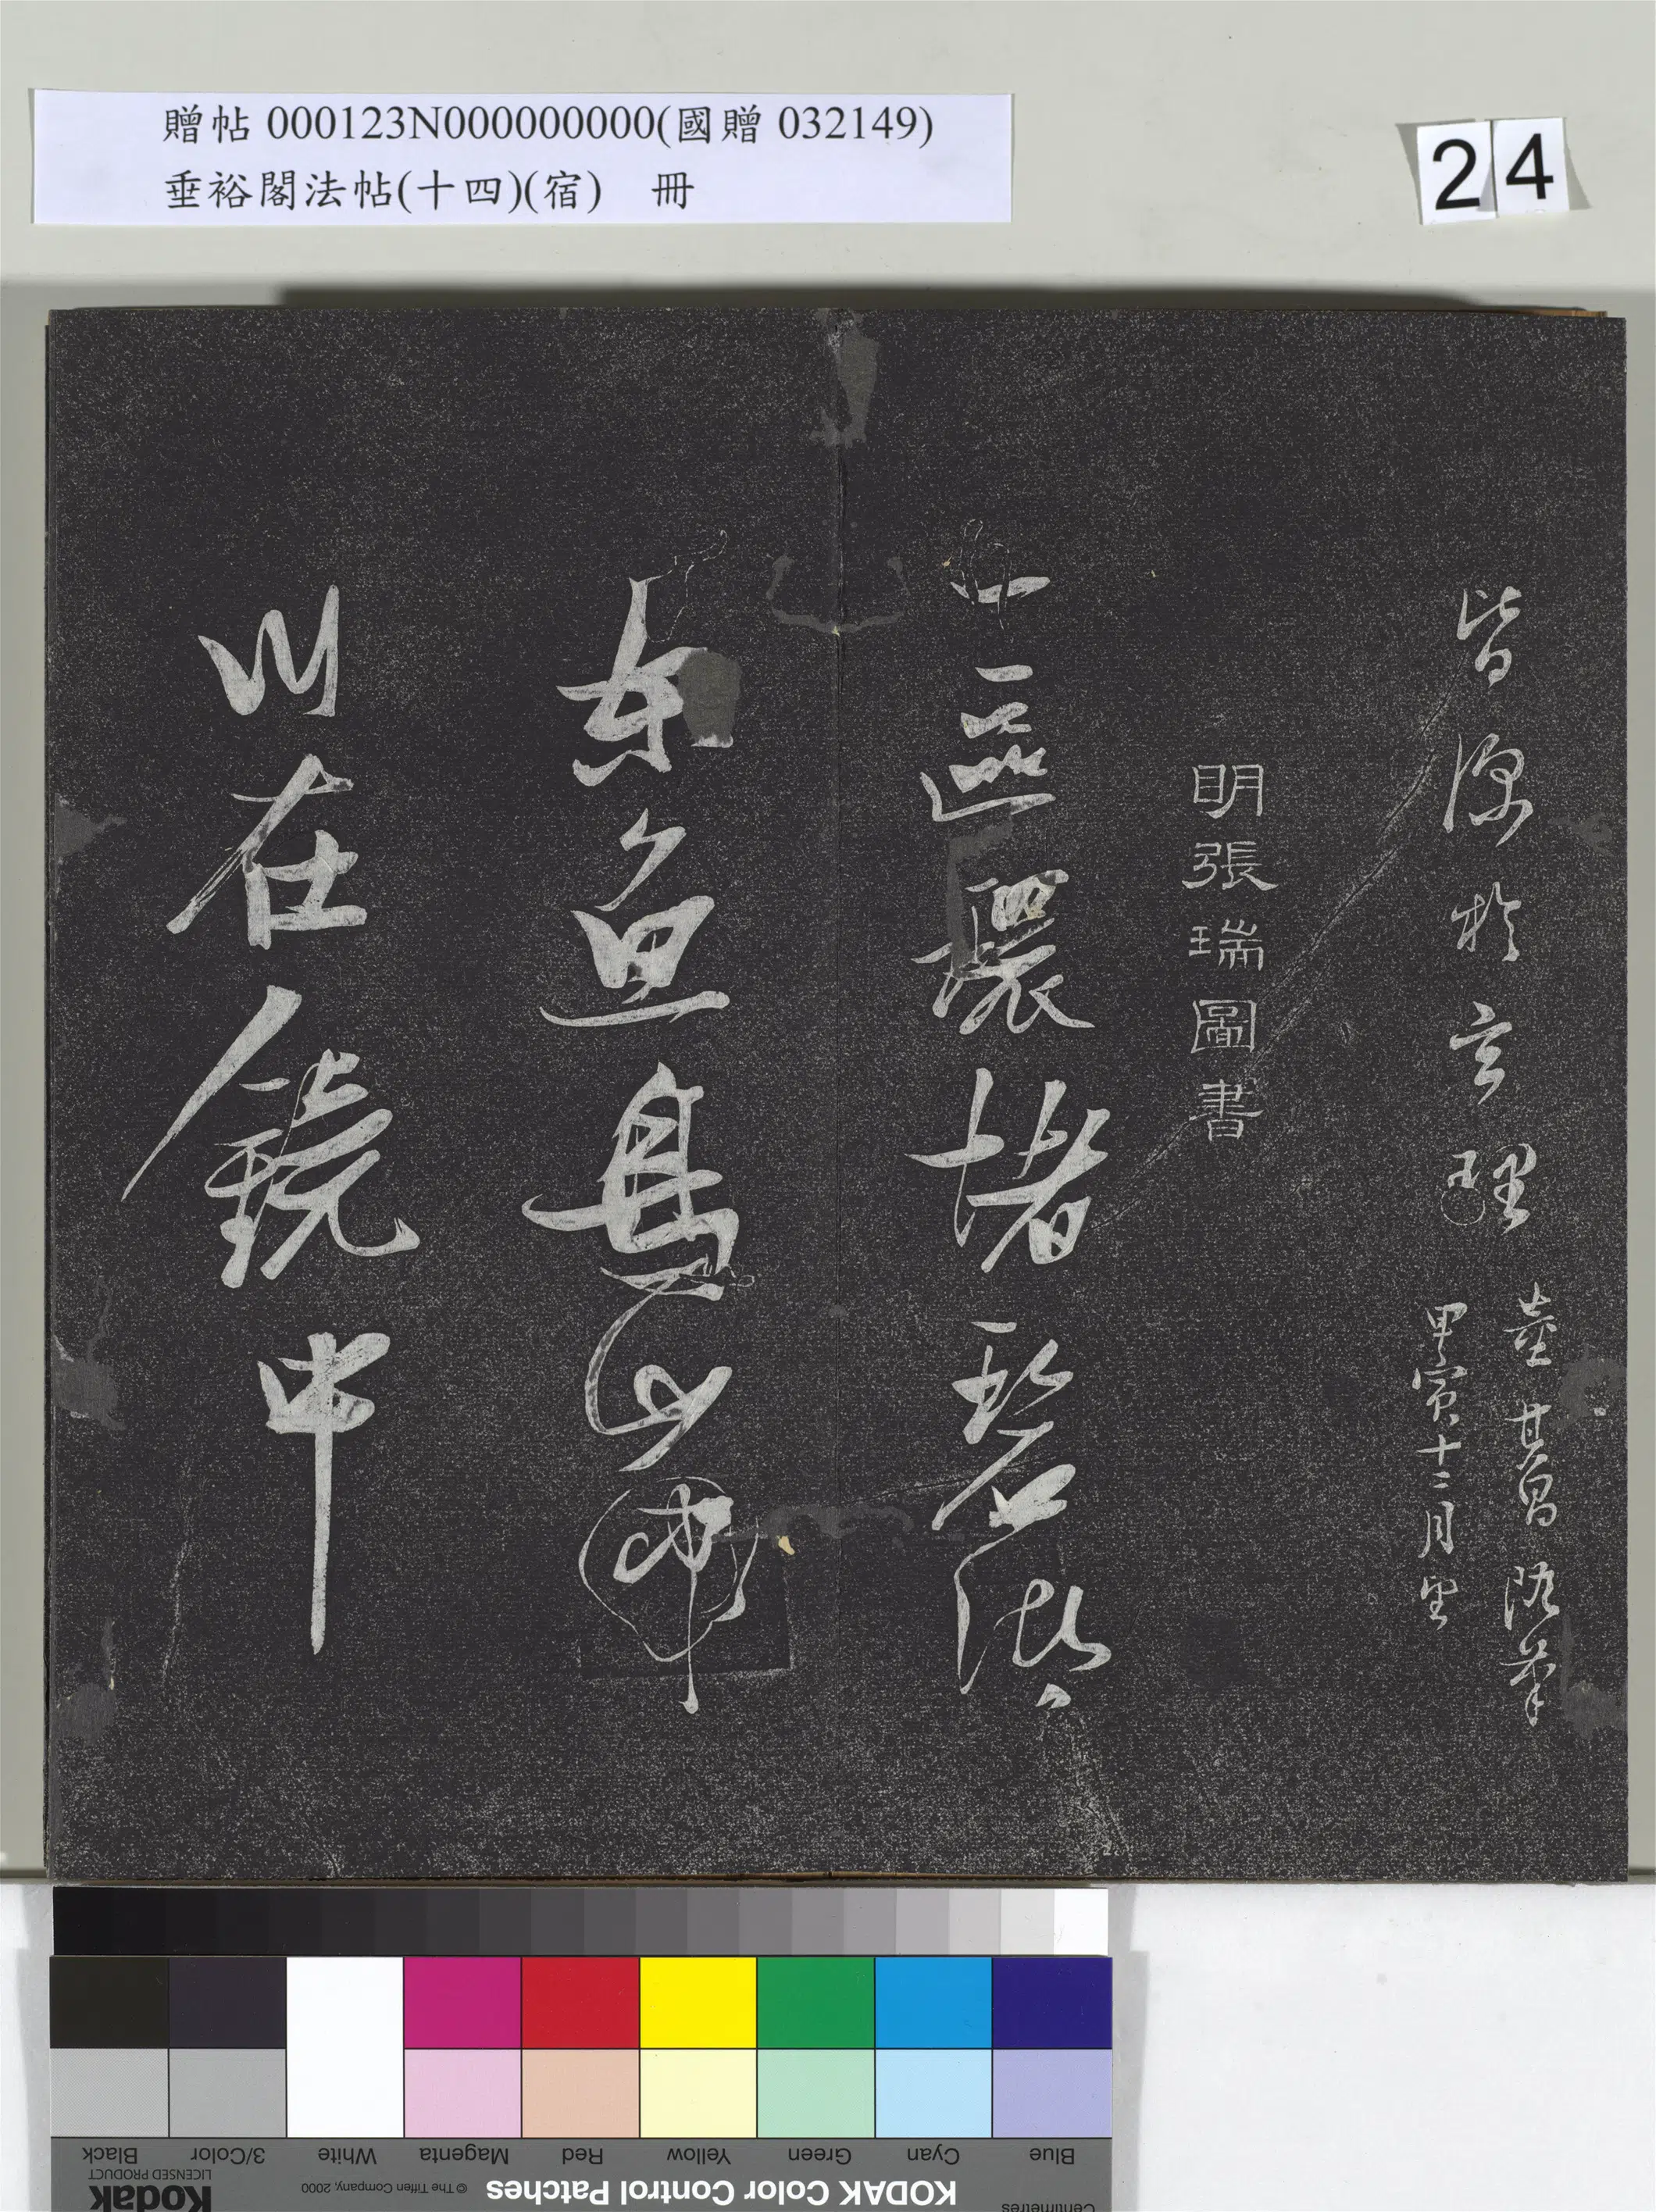 贈帖 000123N000000000(國贈 032149)
垂裕閣法帖(十四)(宿) 冊
24
皆深於玄理
董其昌隨筆
甲寅十二月望
明張瑞圖書
區環堵碧
東魚
川在鏡中
Black 3/Color White Magenta Red Yellow Green Cyan Blue
Kodak LICENSED PRODUCT © The Tiffen Company, 2000 KODAK Color Control Patches Centimetres